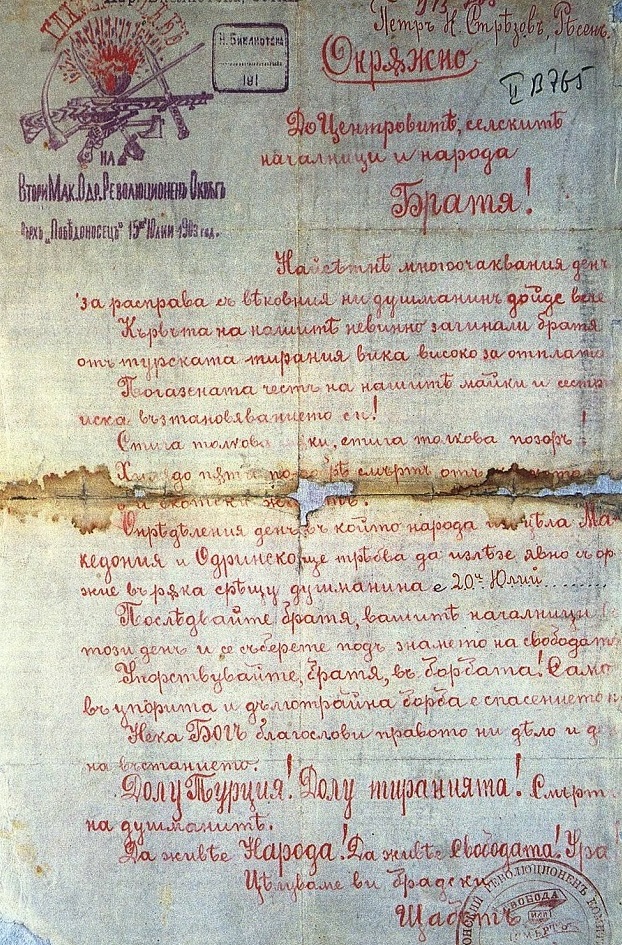 Н. Библиотека
181
Петръ Н. Стрѣзовъ, Рѣсенъ
Окрѫжно
II В 765
До Центровитѣ, селскитѣ
началници и народа
Братя!
на
Втори Мак. Одр. Революционенъ Окрѫгъ
Върхъ „Побѣдоносецъ" 15ий Юлий 1903 год.
Найсетнѣ многоочаквания день
за расправа съ вѣковния ни душманинъ дойде вече
Кръвъта на нашитѣ невинно загинали братя
отъ турската тирания вика високо за отплата
Погазената честь на нашитѣ майки и сестри
иска възтановяванието си!
Стига толкова мѫки, стига толкова позоръ!
до пѫти по добрѣ смърть отъ
скотски
Опрѣдѣления день въ който народа изъ цѣла Ма-
кедония и Одринско ще трѣбва да излѣзе явно съ орѫ-
жие въ рѫка срѣщу душманина е 20й Юлий
Послѣдвайте братя, вашитѣ началници въ
този день и се съберете подъ знамето на свободата
Упорствувайте, братя, въ борбата! Само
въ упорита и дълготрайна борба е спасението
Нека Богъ благослови правото ни дѣло и
на въстанието.
Долу Турция! Долу тиранията! Смърть
на душманитѣ.
Да живѣе Народа! Да живѣе Свободата! Ура
Цѣлуваме ви братски
Щабътъ
Революционенъ
Свобода
или
Смърть